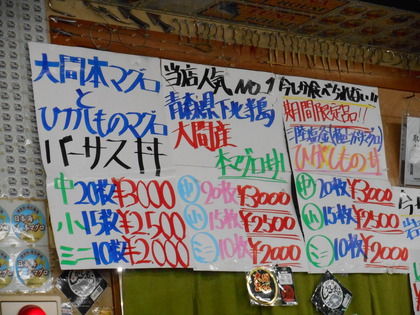 大間本マグロ
と
ひがしものマグロ
バーサス丼
中20枚¥3000
小15枚¥2500
ミニ10枚¥2,000
当店人気NO.1
青森県下北郡
大間産
本マグロ丼
中20枚¥3000
小15枚¥2500
ミニ10枚¥2000
今しか食べられない!!
期間限定品!!
ひがしもの丼
中20枚¥3000
小15枚¥2500
ミニ10枚¥2000